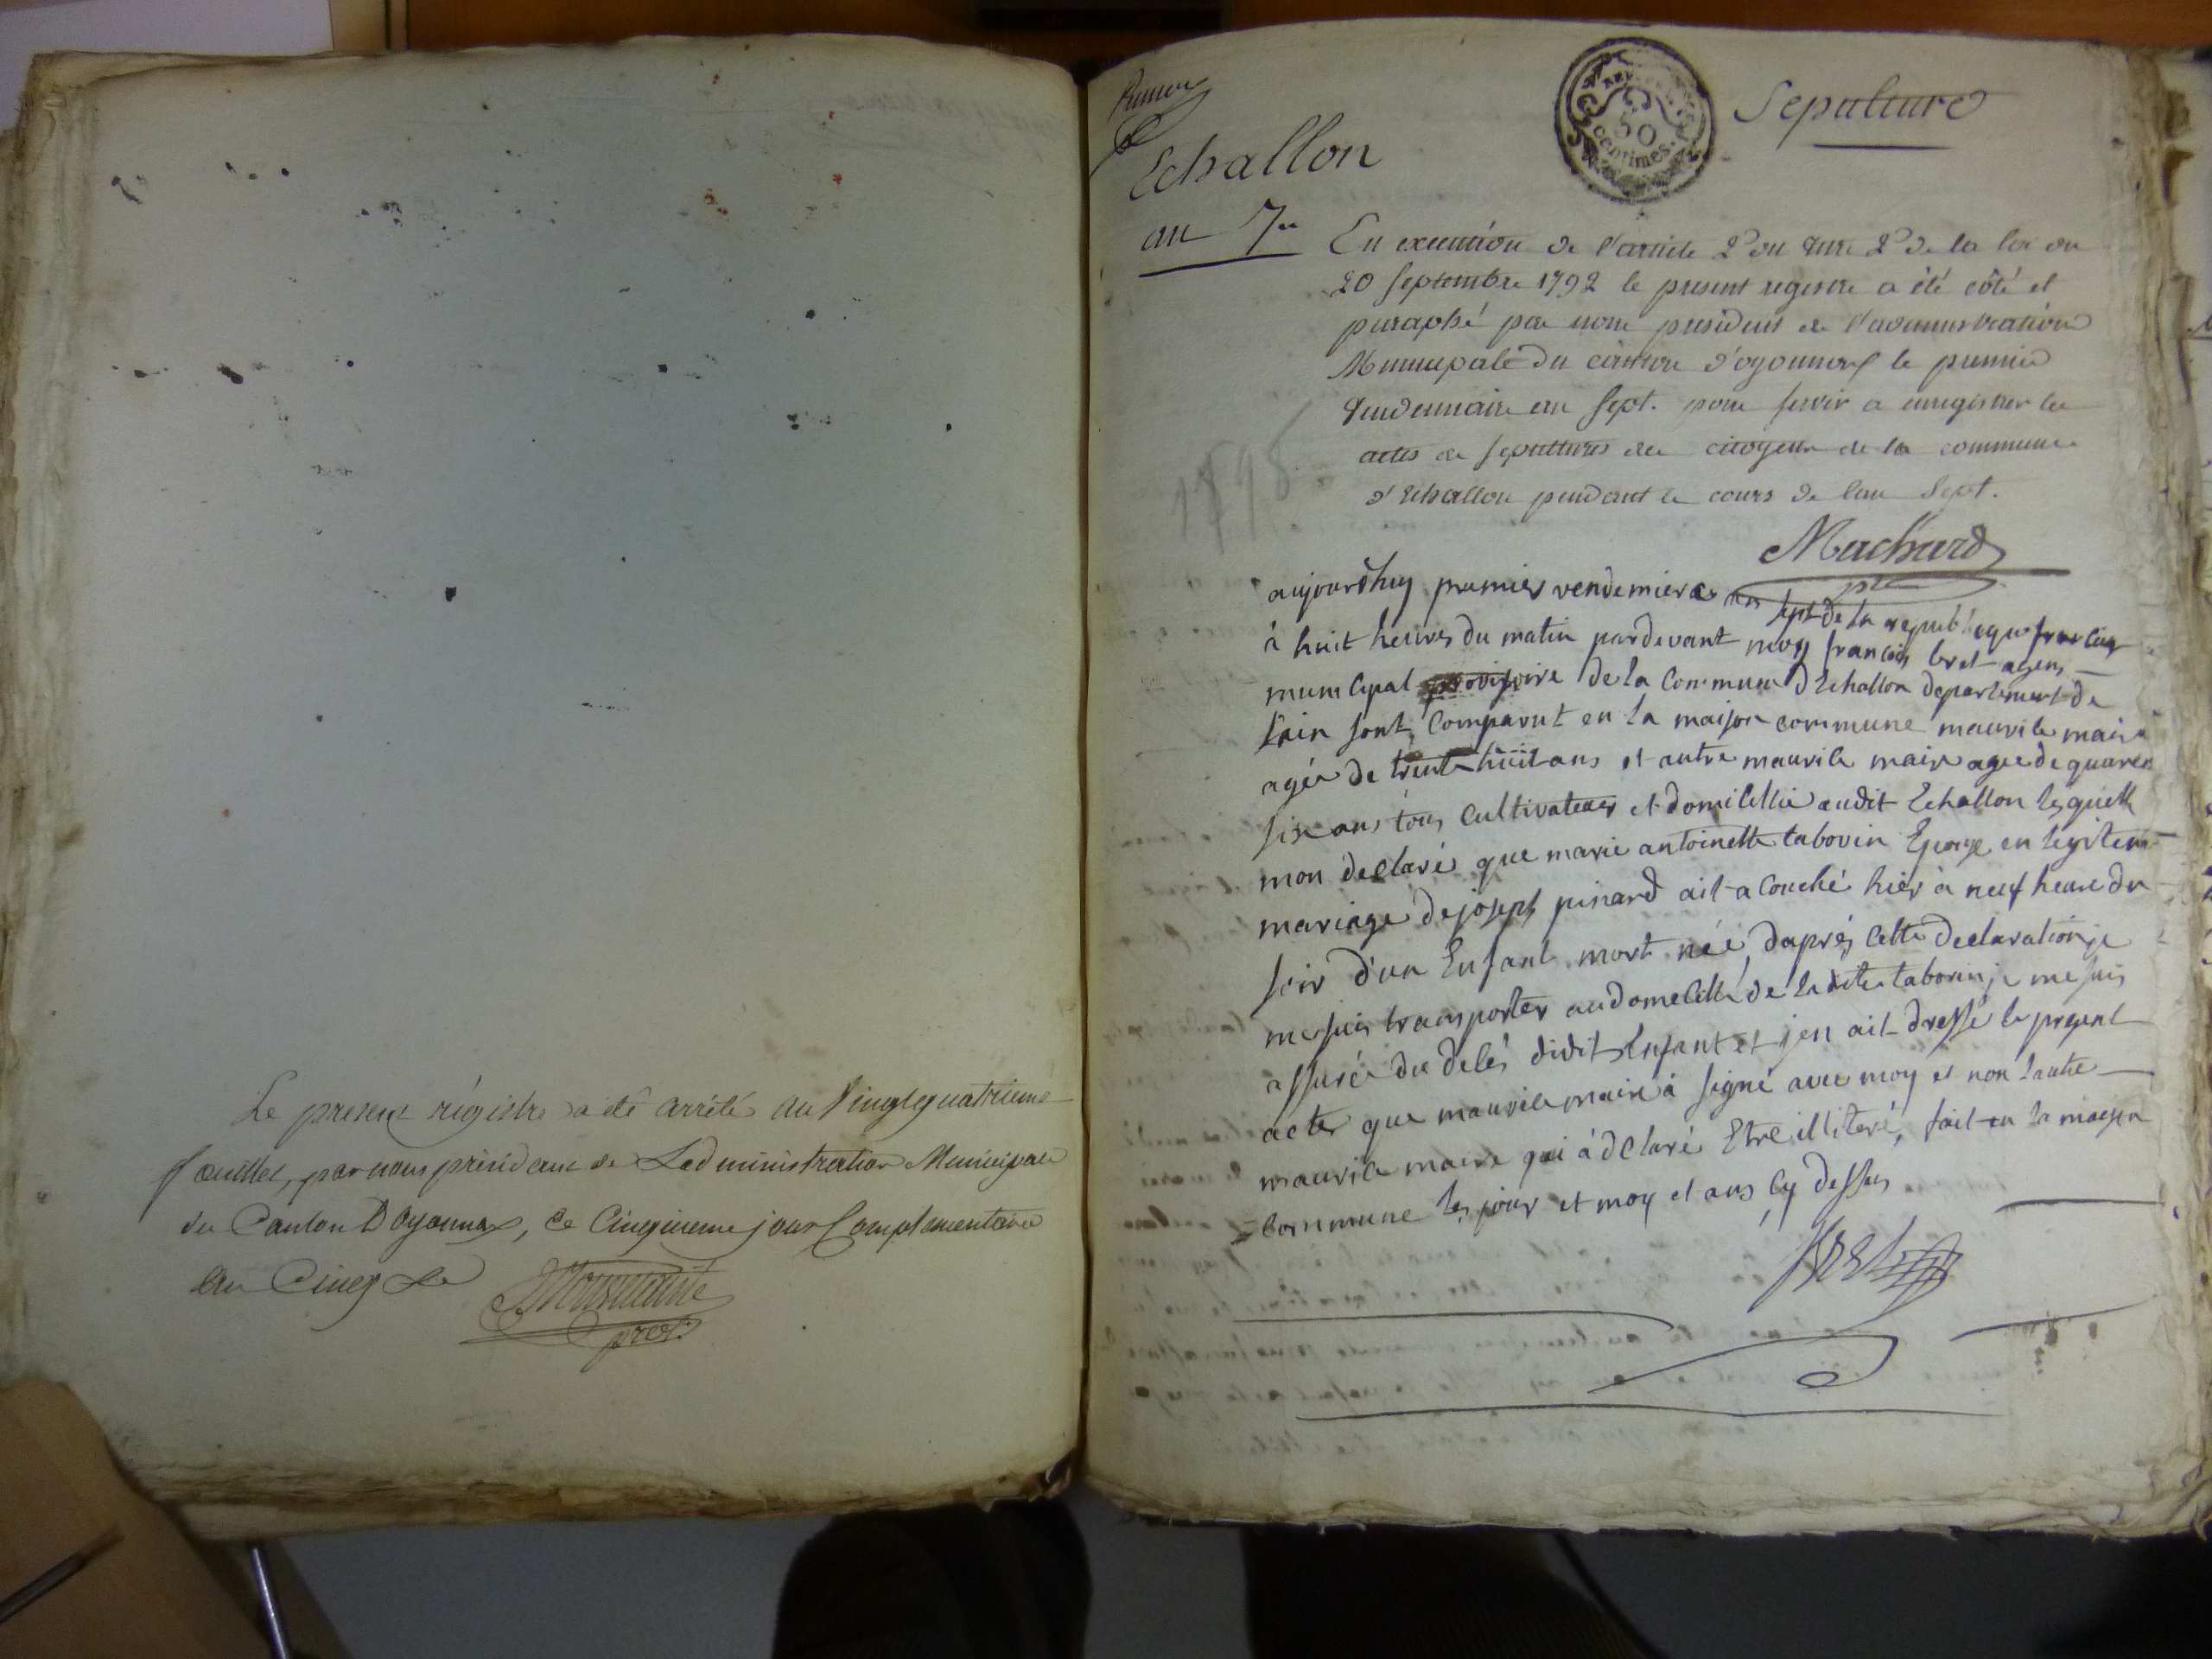 Le present régistre a été arrêté au Vingtquatrieme
feuillet, par nous président de Ladministration Municipale
du Canton D'Oyonnax, ce Cinquieme jour Complementaire
an Cinq Le
presi.
Premier
Echallon
an 7e
REP
50
centimes.
Sepulture
En execution de l'article 2e du titre 2e de la loi du
20 Septembre 1792 le present registre a été côté et
paraphé par nous president de l'administration
Municipale du canton d'oyonnax le premier
Vendemiaire an Sept. pour servir a enregistrer les
actes de sepultures des citoyens de la commune
d'Echallon pendant le cours de lan Sept.
1798
Machard
pt
aujourdhuy premier vendemiere an sept de la republique francaise
à huit heures du matin pardevant moy francois bret agens
municipal provisoire de la Commune dEchallon departement de
l'ain sont comparut en la maison commune maurile maire
agée de trente huit ans et autre maurile maire agee de quarente
six ans tous cultivateurs et domicillié audit Echallon lesquells
mon déclaré que marie antoinette tabouin Epouse en legiteme
mariage de joseph pinard ait acouché hier à neuf heure du
soir d'un Enfant mort née, daprés cette declaration je
me suis transporter au domecille de ladite tabouin, je me suis
assuré du delés dudit Enfant et jen ait dressé le present
acte que maurile maire à signé avec moy et non l'autre
maurile maire qui à declaré Etre illiteré, fait en la maison
commune les jour et moy et ans cy dessus
Bret